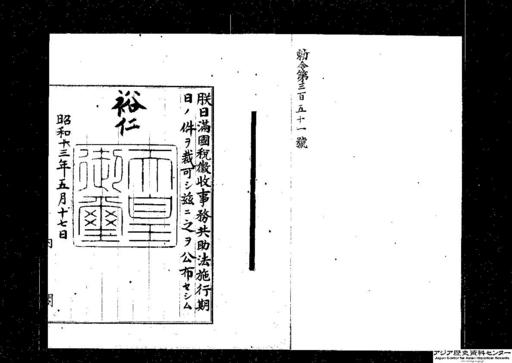 勅令第三百五十一號
朕日滿國税徴收事務共助法施行期
日ノ件ヲ裁可シ玆ニ之ヲ公布セシム
裕仁
天皇
御璽
昭和十三年五月十七日
内
閣
アジア歴史資料センター
Japan Center for Asian Historical Records